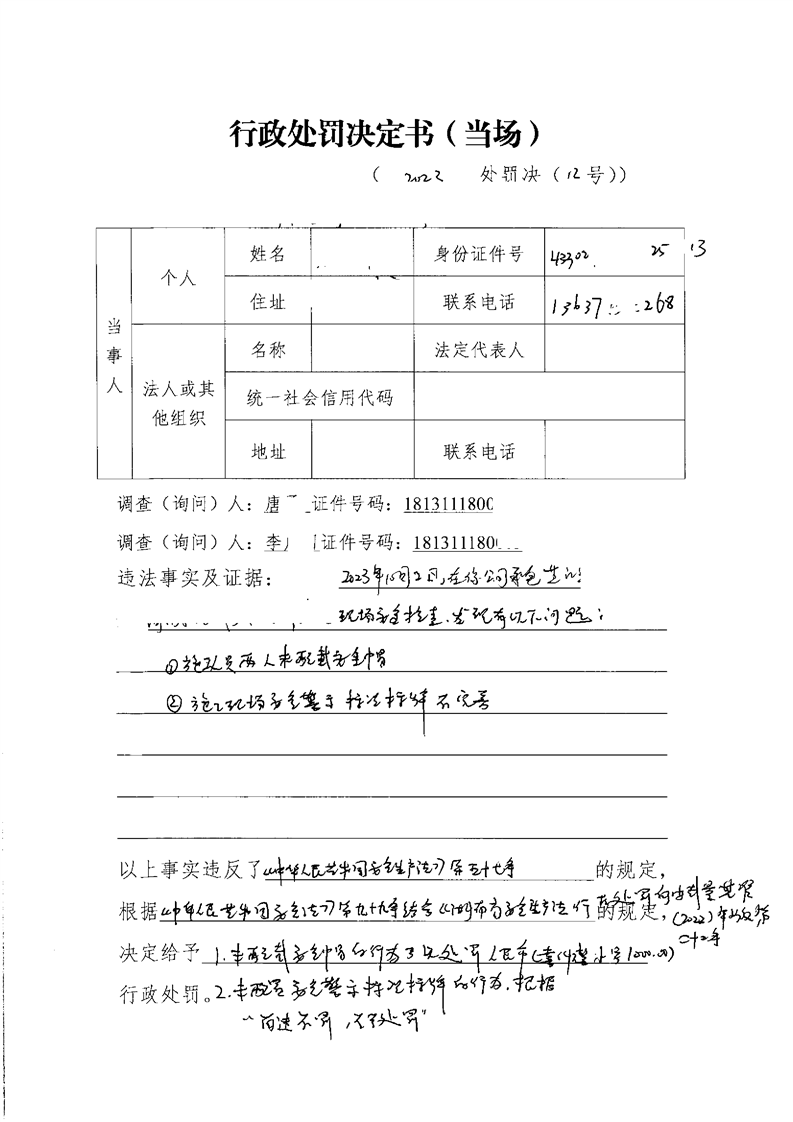 行政处罚决定书（当场）
（ 2022 处罚决（12号））
当事人
个人
姓名
身份证件号
43302 25 13
住址
联系电话
13637 268
法人或其他组织
名称
法定代表人
统一社会信用代码
地址
联系电话
调查（询问）人：唐 证件号码：1813111800
调查（询问）人：李 证件号码：181311180
违法事实及证据： 2023年10月2日，在你公司承包
现场安全检查，发现有以下问题：
①施工员两人未配戴安全帽
②施工现场安全警示标识标牌不完善
以上事实违反了《中华人民共和国安全生产法》第五十七条 的规定，
根据《中华人民共和国安全法》第九十九条结合《湖南省安全生产违法行 政处罚自由裁量基准 的规定，
(2022) 年版
二十条
决定给予 1.未配戴安全帽的行为予以处罚人民币(壹仟整小字1000.00)
行政处罚。2.未配置安全警示标识标牌的行为，根据
“首违不罚，不予处罚”